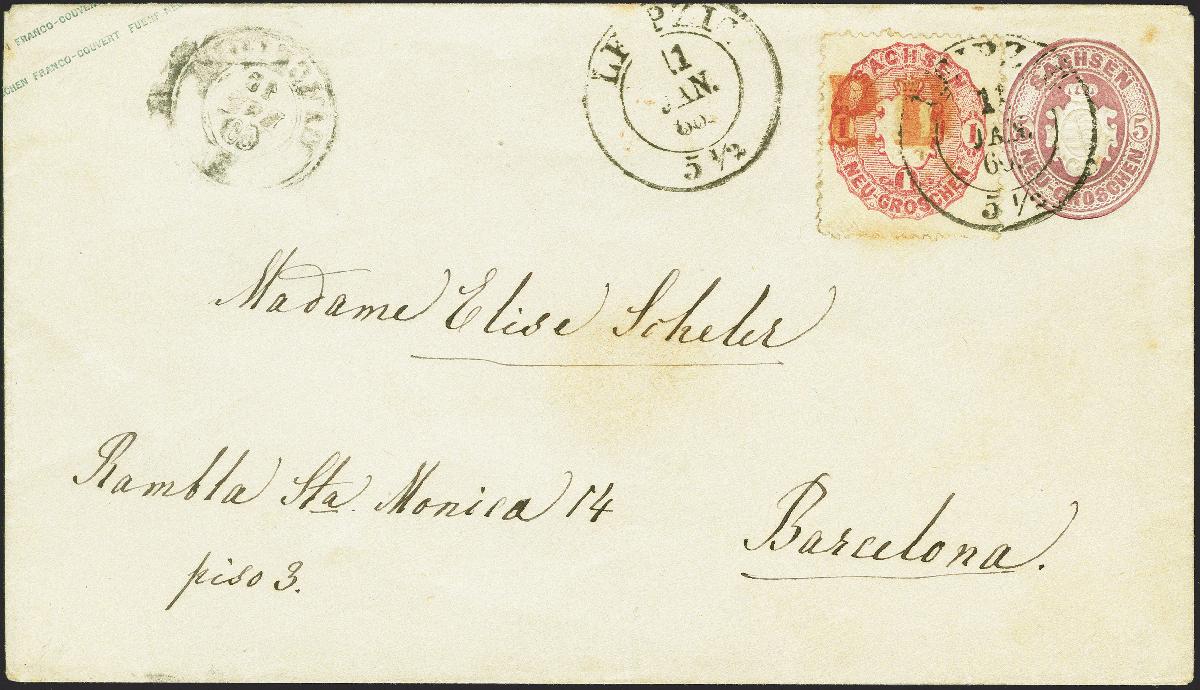 FRANCO-COUVERT
FRANCO-COUVERT FUENF
LEIPZIG
11
JAN.
5 1/2
SACHSEN
1
1
1
NEU-GROSCHEN
P
11
JAN.
5 1/2
SACHSEN
5
NEU-GROSCHEN
Madame Elise Scheler
Rambla Sta. Monica 14
piso 3.
Barcelona.